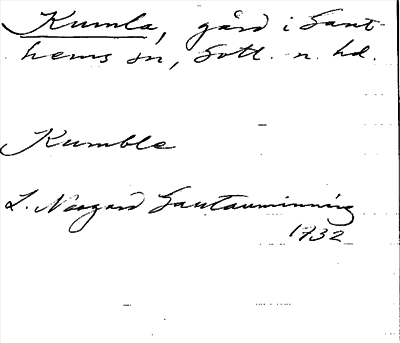 Kumla, gård i Sant-
hems sn, Gotl. n. hd.
Kumble
L. Neogard Gautauminning
1732